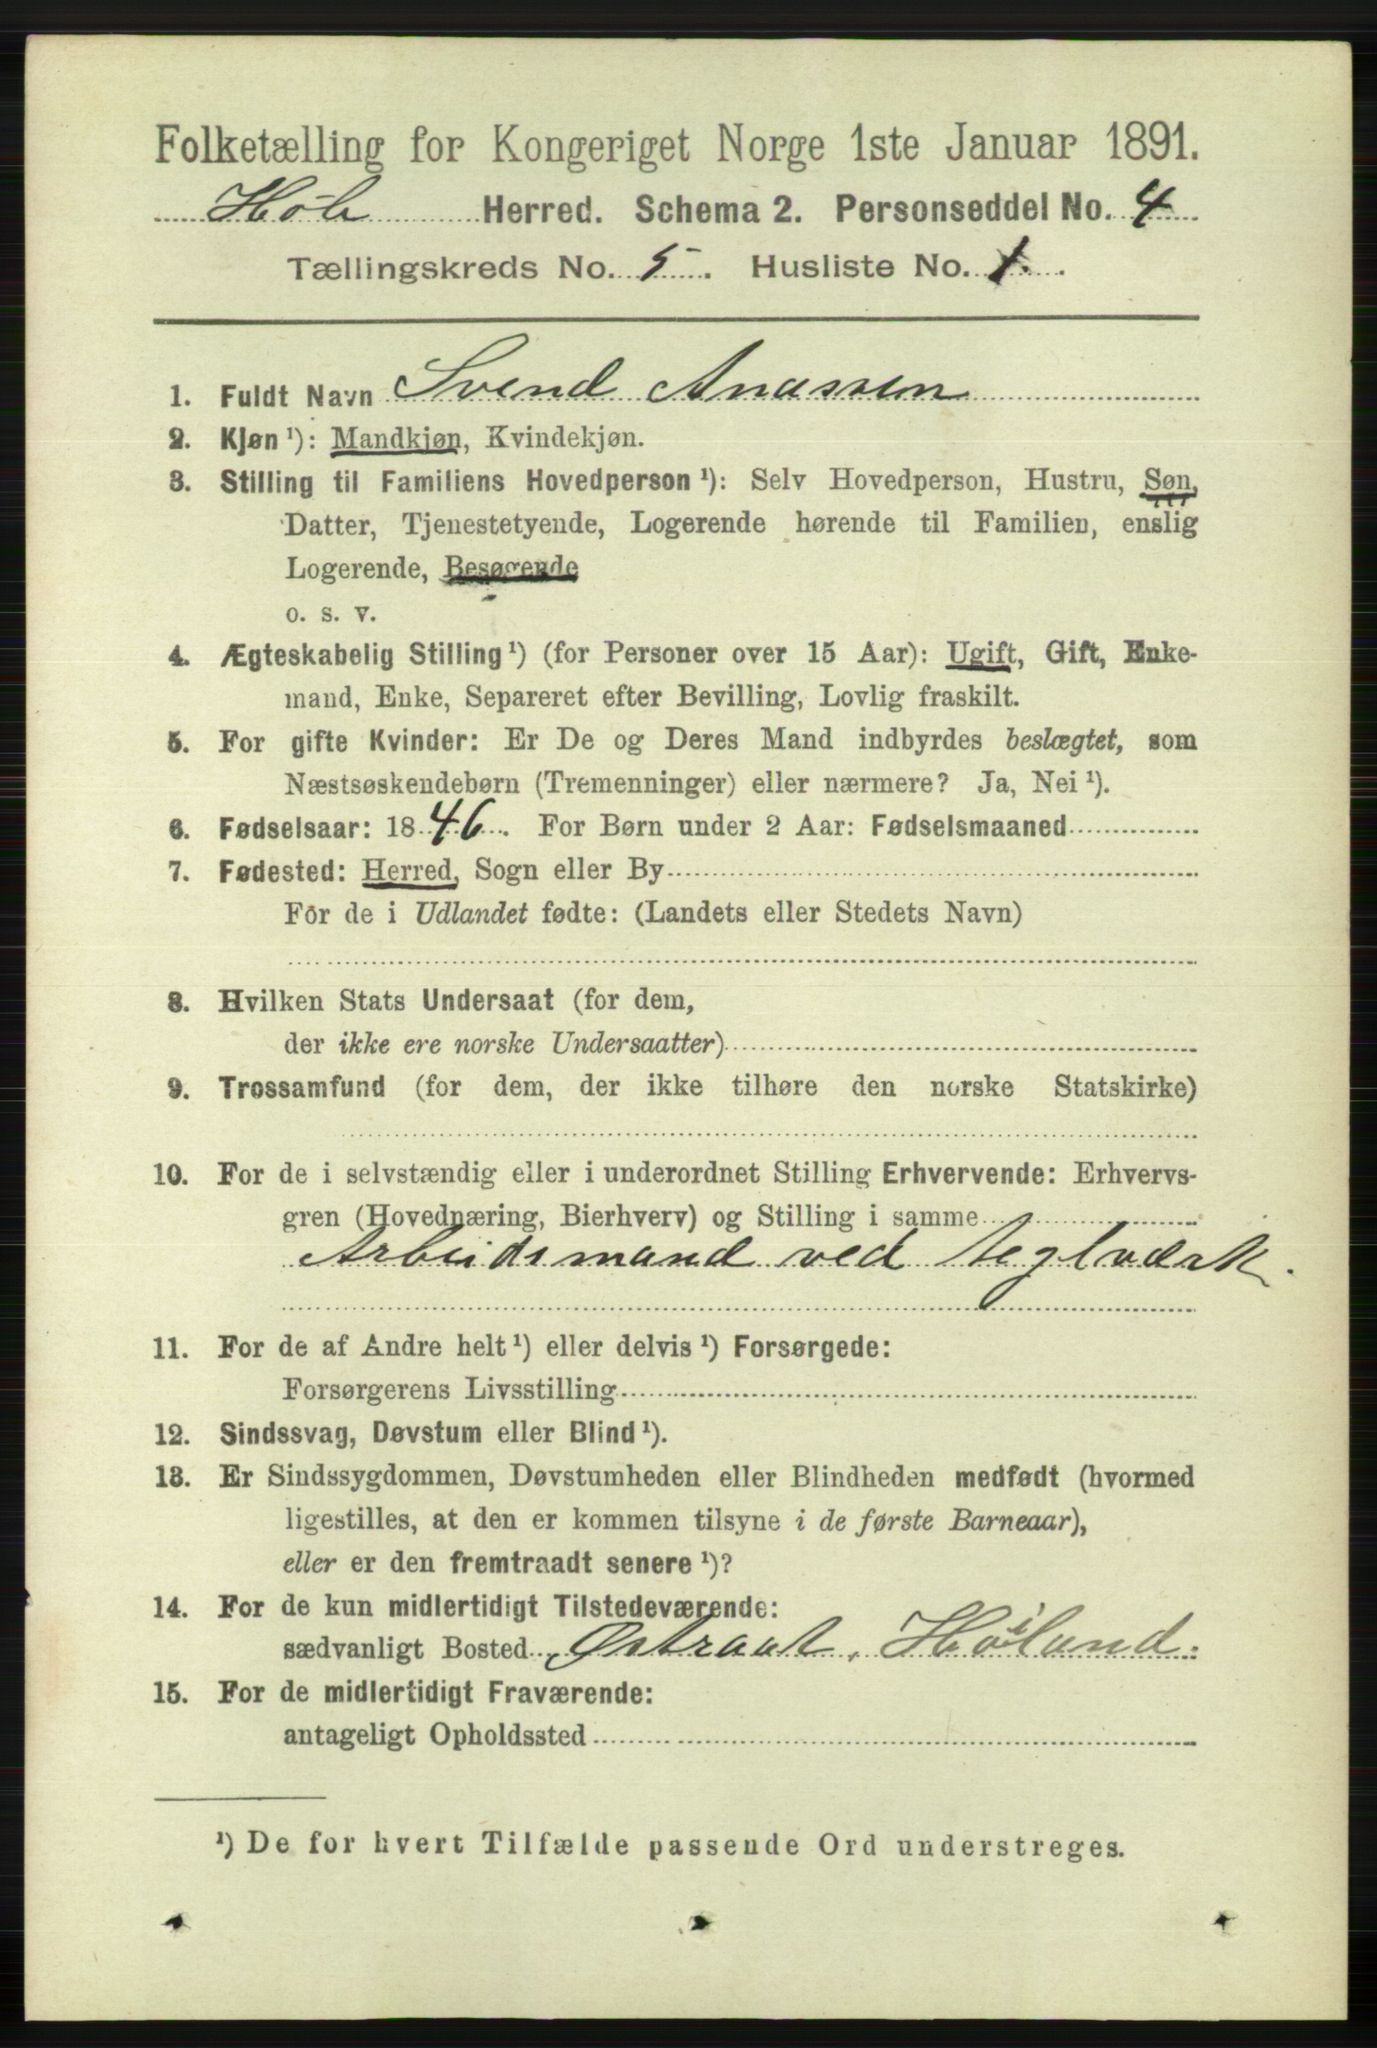 Folketælling for Kongeriget Norge 1ste Januar 1891.
Herred. Schema 2. Personseddel No. 4
Tællingskreds No. 5. Husliste No. 1.
1. Fuldt Navn Svend Anassen
2. Kjøn ¹): Mandkjøn, Kvindekjøn.
3. Stilling til Familiens Hovedperson ¹): Selv Hovedperson, Hustru, Søn,
Datter, Tjenestetyende, Logerende hørende til Familien, enslig
Logerende, Besøgende
o. s. v.
4. Ægteskabelig Stilling ¹) (for Personer over 15 Aar): Ugift, Gift, Enke-
mand, Enke, Separeret efter Bevilling, Lovlig fraskilt.
5. For gifte Kvinder: Er De og Deres Mand indbyrdes beslægtet, som
Næstsøskendebørn (Tremenninger) eller nærmere? Ja, Nei ¹).
6. Fødselsaar: 1846. For Børn under 2 Aar: Fødselsmaaned
7. Fødested: Herred, Sogn eller By
For de i Udlandet fødte: (Landets eller Stedets Navn)
8. Hvilken Stats Undersaat (for dem,
der ikke ere norske Undersaatter)
9. Trossamfund (for dem, der ikke tilhøre den norske Statskirke)
10. For de i selvstændig eller i underordnet Stilling Erhvervende: Erhvervs-
gren (Hovednæring, Bierhverv) og Stilling i samme
Arbeidsmand ved teglværk.
11. For de af Andre helt ¹) eller delvis ¹) Forsørgede:
Forsørgerens Livsstilling
12. Sindssvag, Døvstum eller Blind ¹).
13. Er Sindssygdommen, Døvstumheden eller Blindheden medfødt (hvormed
ligestilles, at den er kommen tilsyne i de første Barneaar),
eller er den fremtraadt senere ¹)?
14. For de kun midlertidigt Tilstedeværende:
sædvanligt Bosted Østraat, Høiland.
15. For de midlertidigt Fraværende:
antageligt Opholdssted
¹) De for hvert Tilfælde passende Ord understreges.